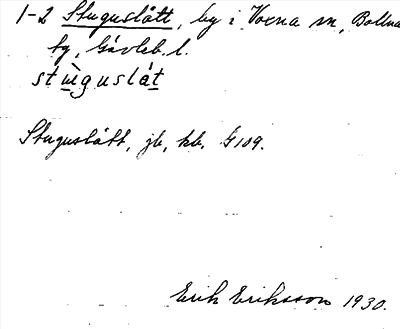 1-2 Stuguslått, by i Voxna sn, Bollnäs
fg, Gävleb. l.
stùguslá̀t
Stuguslått, jb, kb. G 109.
Erik Eriksson 1930.